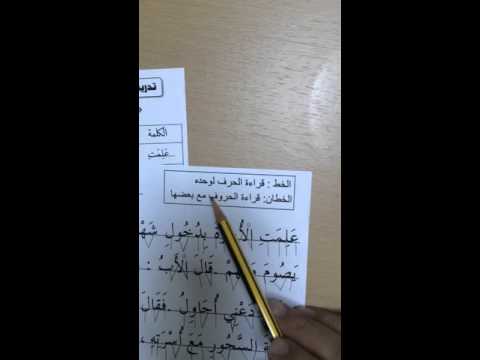 الكلمة
عَلِمَتِ
الخط : قراءة الحرف لوحده
الخطان: قراءة الحروف مع بعضها
عَلِمَتِ بِدُخُولِ
يَصُومَ قَالَ الأَبُ :
أُحَاوِلُ فَقَالَ
السَّحُورِ مَعَ أُسْرَتِهِ ،